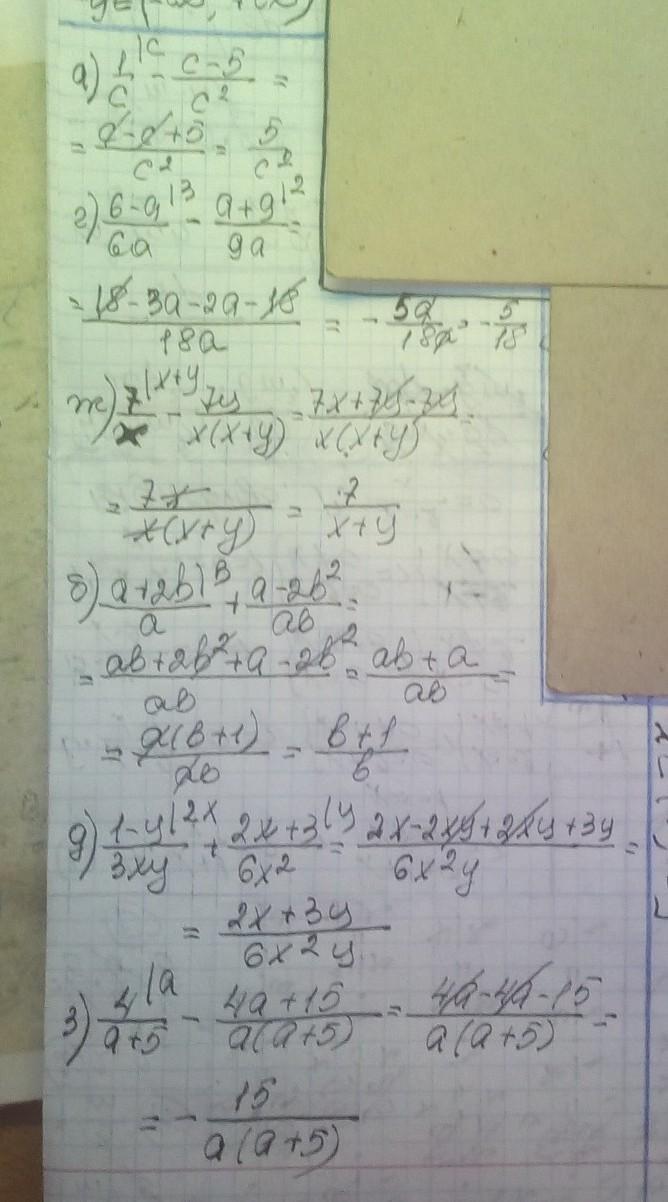 а) 1/c |c - (c-5)/c² =
= (c-c+5)/c² = 5/c²
г) (6-a)/6a |3 - (a+9)/9a |2 =
= (18-3a-2a-18)/18a = -5a/18a = -5/18
ж) 7/x |x+y - 7y/x(x+y) = (7x+7y-7y)/x(x+y) =
= 7x/x(x+y) = 7/(x+y)
б) (a+2b)/a |в + (a-2b²)/ab =
= (ab+2b²+a-2b²)/ab = (ab+a)/ab =
= a(b+1)/ab = (b+1)/b
д) (1-y)/3xy |2x + (2x+3)/6x² |y = (2x-2xy+2xy+3y)/6x²y =
= (2x+3y)/6x²y
з) 4/(a+5) |a - (4a+15)/a(a+5) = (4a-4a-15)/a(a+5) =
= -15/a(a+5)